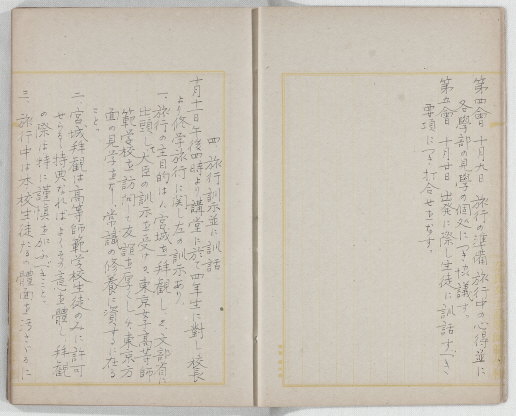 第四會 十月九日 旅行の準備 旅行中の心得並に
各學部の見學の個処につき協議す。
第五會 十月十日 出発に際し生徒に訓話すべき
要項につき打合せをなす。
四 旅行訓示並に訓話
十月十一日午後四時より講堂に於て四年生に對し校長
より修学旅行に関し左の訓示あり
一、旅行の主目的は 宮城を拝観し 文部省に
出頭し大臣の訓示を受け 東京女子高等師
範学校を訪問して友誼を厚くし 東京方
面の見学をなし常識の修養に資するにある
こと。
二 宮城拝観は高等師範学校生徒のみに許可
せらるゝ特典なればよく意を體し拝観
の際は特に謹慎を加ふべきこと。
三 旅行中は本校生徒たるの體面を汚さざるに